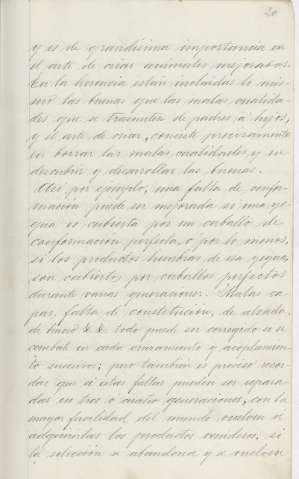 20
y es de grandísima importancia en
el arte de criar animales mejorados.
En la herencia están incluidas lo mis-
mo las buenas que las malas cualida-
des que se trasmiten de padres á hijos,
y el arte de criar, consiste precisamente
en borrar las malas cualidades y en
descubrir y desarrollar las buenas.
Así por ejemplo, una falta de confor-
mación puede ser mejorada si una ye-
gua es cubierta por un caballo de
conformacion perfecta, ó por lo menos,
si los productos hembras de esa yegua,
son cubiertos por caballos perfectos
durante varias generaciones. Malas ca-
pas, falta de constitución, de alzada,
de hueso &. &. todo puede ser corregido si se
combate en cada cruzamiento y acoplamien-
to sucesivo; pero tambien es preciso recor-
dar que si estas faltas pueden ser separa-
das en tres ó cuatro generaciones, con la
mayor facilidad del mundo vuelven á
adquirirlas los productos venideros, si
la seleccion se abandona y se vuelven